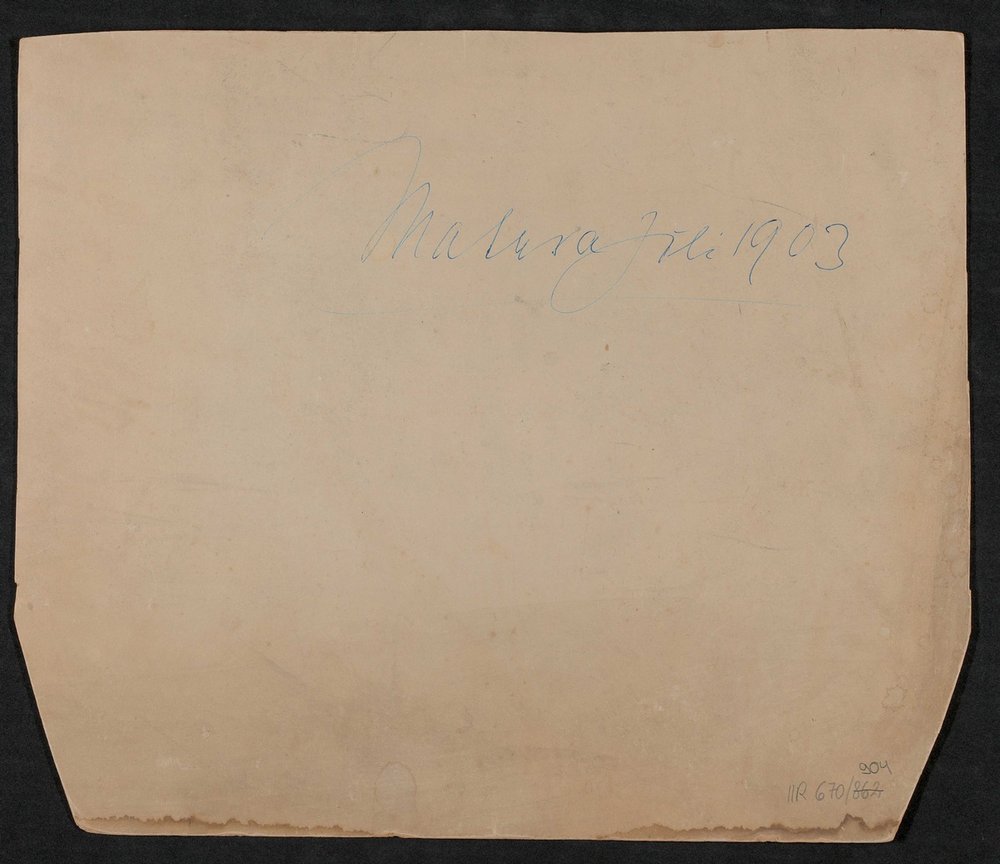 Matura Juli 1903
904
IIR 670/862